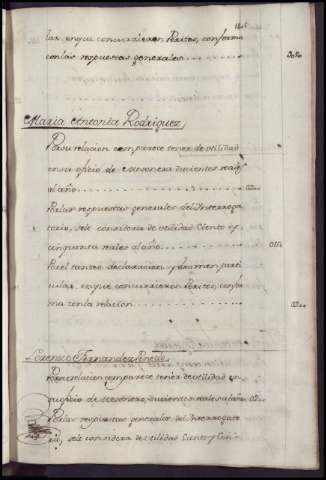 lar, enque concurrieron Peritos, conforma
con las respuestas generales
Maria Antonia Rodriguez
Por su relacion comparece tener de utilidad
en su oficio de ducientos reales
al año
Por las respuestas generales del Interroga
torio, se le considera de utilidad Ciento y
cinquenta reales al año
Por el tanteo, declaracion, y examen parti
cular, en que concurrieron Peritos, confor
ma con la relacion
Lorenzo Fernandez
Por su relacion comparece tener de utilidad en
su oficio de ducientos reales al año
Por las respuestas generales del Interrogato
rio, se le considera de utilidad Ciento y Cin